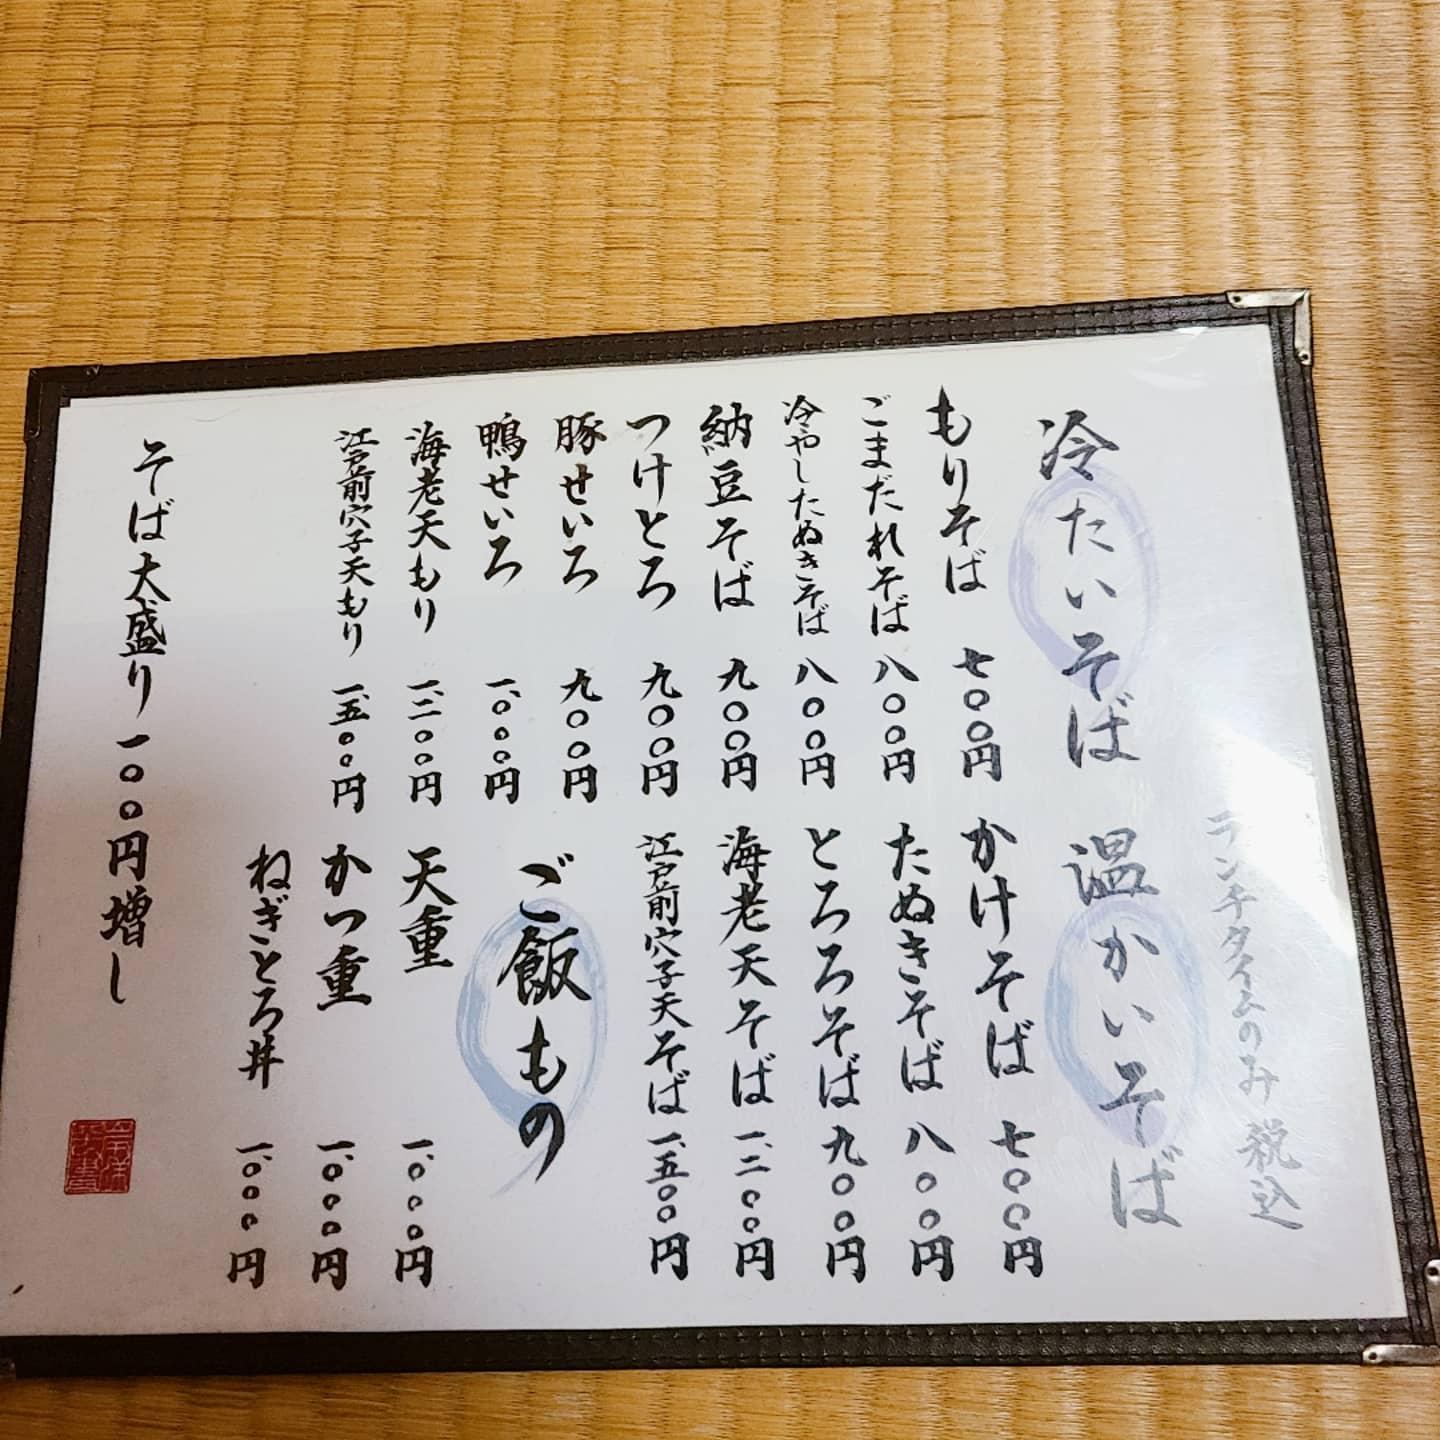 ランチタイムのみ 税込
冷たいそば
もりそば 七〇〇円
ごまだれそば 八〇〇円
冷やしたぬきそば 八〇〇円
納豆そば 九〇〇円
つけとろ 九〇〇円
豚せいろ 九〇〇円
鴨せいろ 一、〇〇〇円
海老天もり 一、二〇〇円
江戸前穴子天もり 一、五〇〇円
温かいそば
かけそば 七〇〇円
たぬきそば 八〇〇円
とろろそば 九〇〇円
海老天そば 一、二〇〇円
江戸前穴子天そば 一、五〇〇円
ご飯もの
天重 一、〇〇〇円
かつ重 一、〇〇〇円
ねぎとろ丼 一、〇〇〇円
そば大盛り 一〇〇円増し